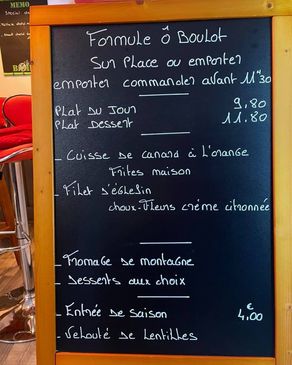 MEMO
Formule Ô Boulot
Sur Place ou emporter
emporter commander avant 11h30
Plat du Jour 9,80
Plat Dessert 11.80
- Cuisse de canard à l'orange
Frites maison
- Filet d'églefin
choux-Fleurs crème citronnée
- Fromage de montagne
- Desserts aux choix
- Entrée de saison 4€,00
- Velouté de lentilles